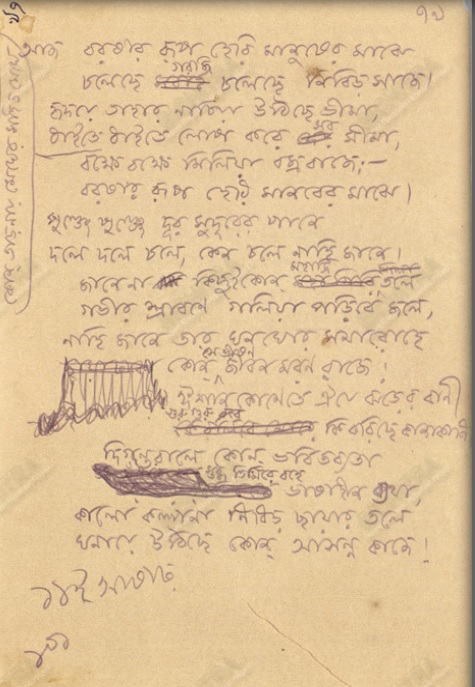 ৭৯
আজ বরষার রূপ হেরি মানবের মাঝে
গরজি
চলেছে চলেছে নিবিড় সাজে।
হৃদয়ে তাহার নাচিয়া উঠিছে ভীমা,
ধাইতে ধাইতে লোপ করে সব সীমা,
কোন্ তাড়নায় মেঘের সহিত মেঘে
বক্ষে বক্ষে মিলিয়া বজ্র বাজে;—
বরষার রূপ হেরি মানবের মাঝে।
পুঞ্জে পুঞ্জে দূর সুদূরের পানে
দলে দলে চলে, কেন চলে নাহি জানে।
জানে না কিছুই কোন্ মহাদ্রি তলে
গভীর শ্রাবণে গলিয়া পড়িবে জলে,
নাহি জানে তার ঘনঘোর সমারোহে
কোন্ সে ভীষণ জীবন মরণ রাজে।
ঈশান কোণেতে ঐযে ঝড়ের বাণী
গুরু গুরু রবে
কি করিছে কানাকানি
দিগন্তরালে কোন্ ভবিতব্যতা
স্তব্ধ তিমিরে বহে
ভাষাহীন ব্যথা,
কালো কল্পনা নিবিড় ছায়ার তলে
ঘনায়ে উঠিছে কোন্ আসন্ন কাজে!
১১ই আষাঢ়